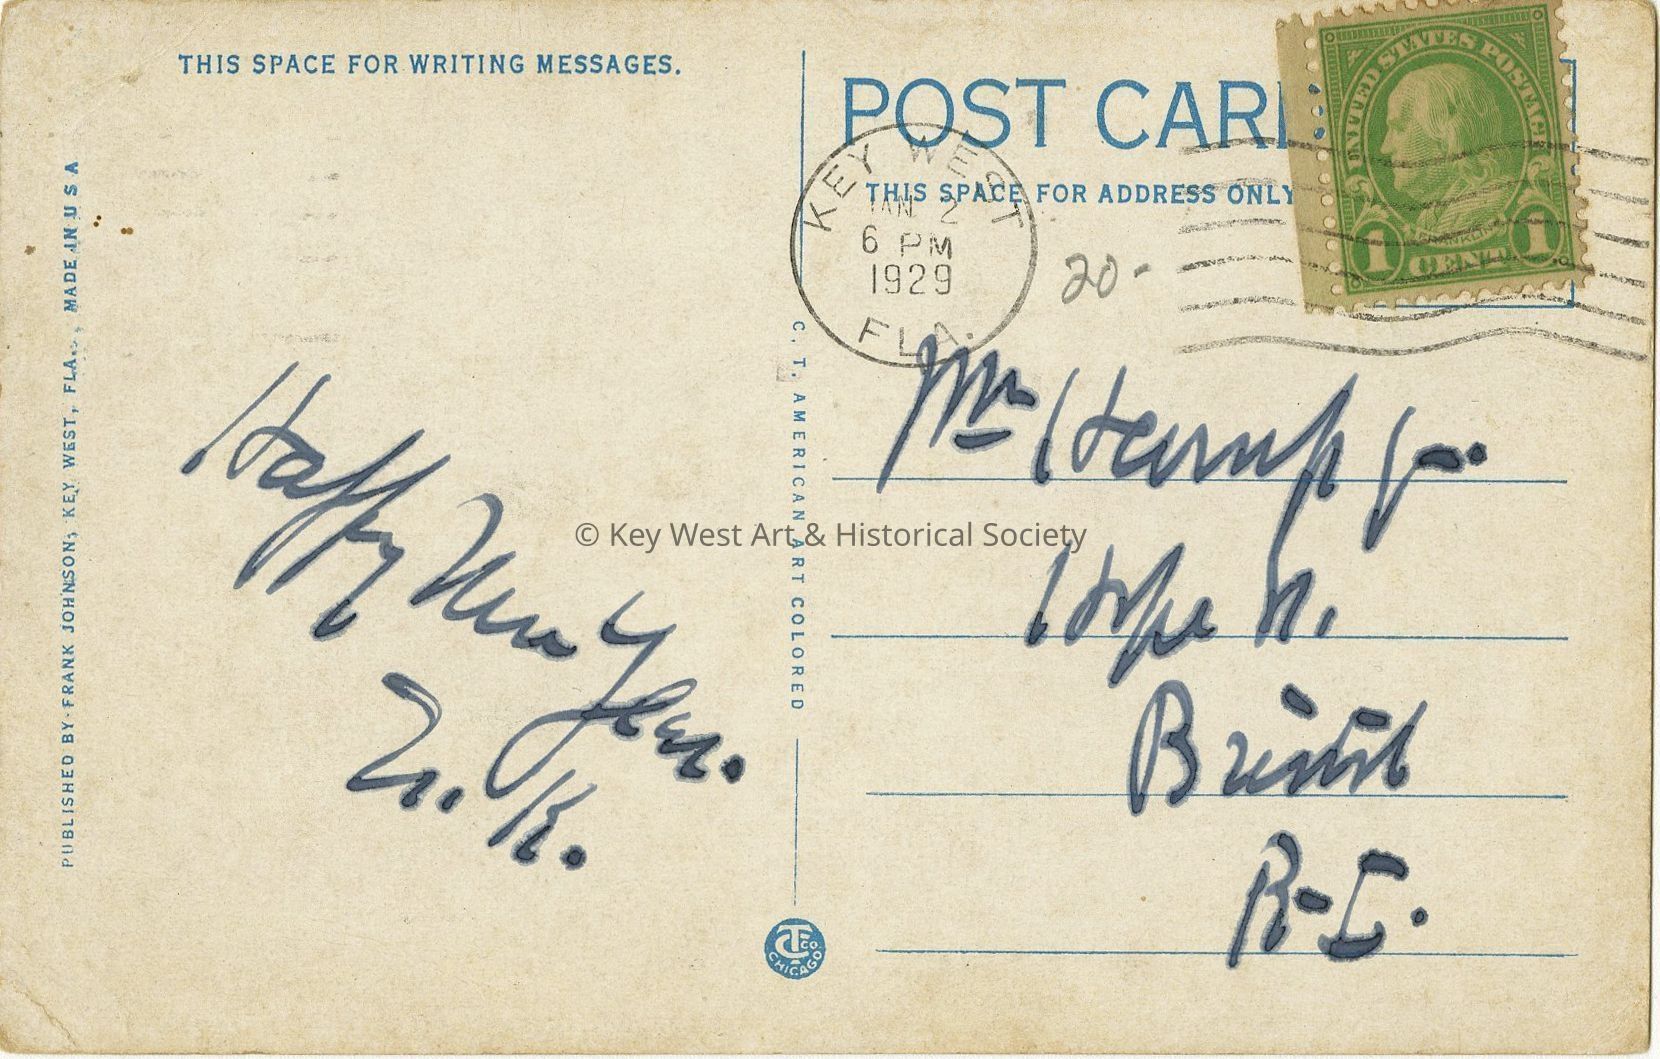 THIS SPACE FOR WRITING MESSAGES.
POST CAR
THIS SPACE FOR ADDRESS ONLY
UNITED STATES POSTAGE
FRANKLIN
1 CENT 1
KEY WEST
JAN 2
6 PM
1929
FLA.
20-
PUBLISHED BY FRANK JOHNSON, KEY WEST, FLA., MADE IN U S A
C. T. AMERICAN ART COLORED
Happy New Year.
K.
Hope
Bristol
R-I.
© Key West Art & Historical Society
CT CO. CHICAGO